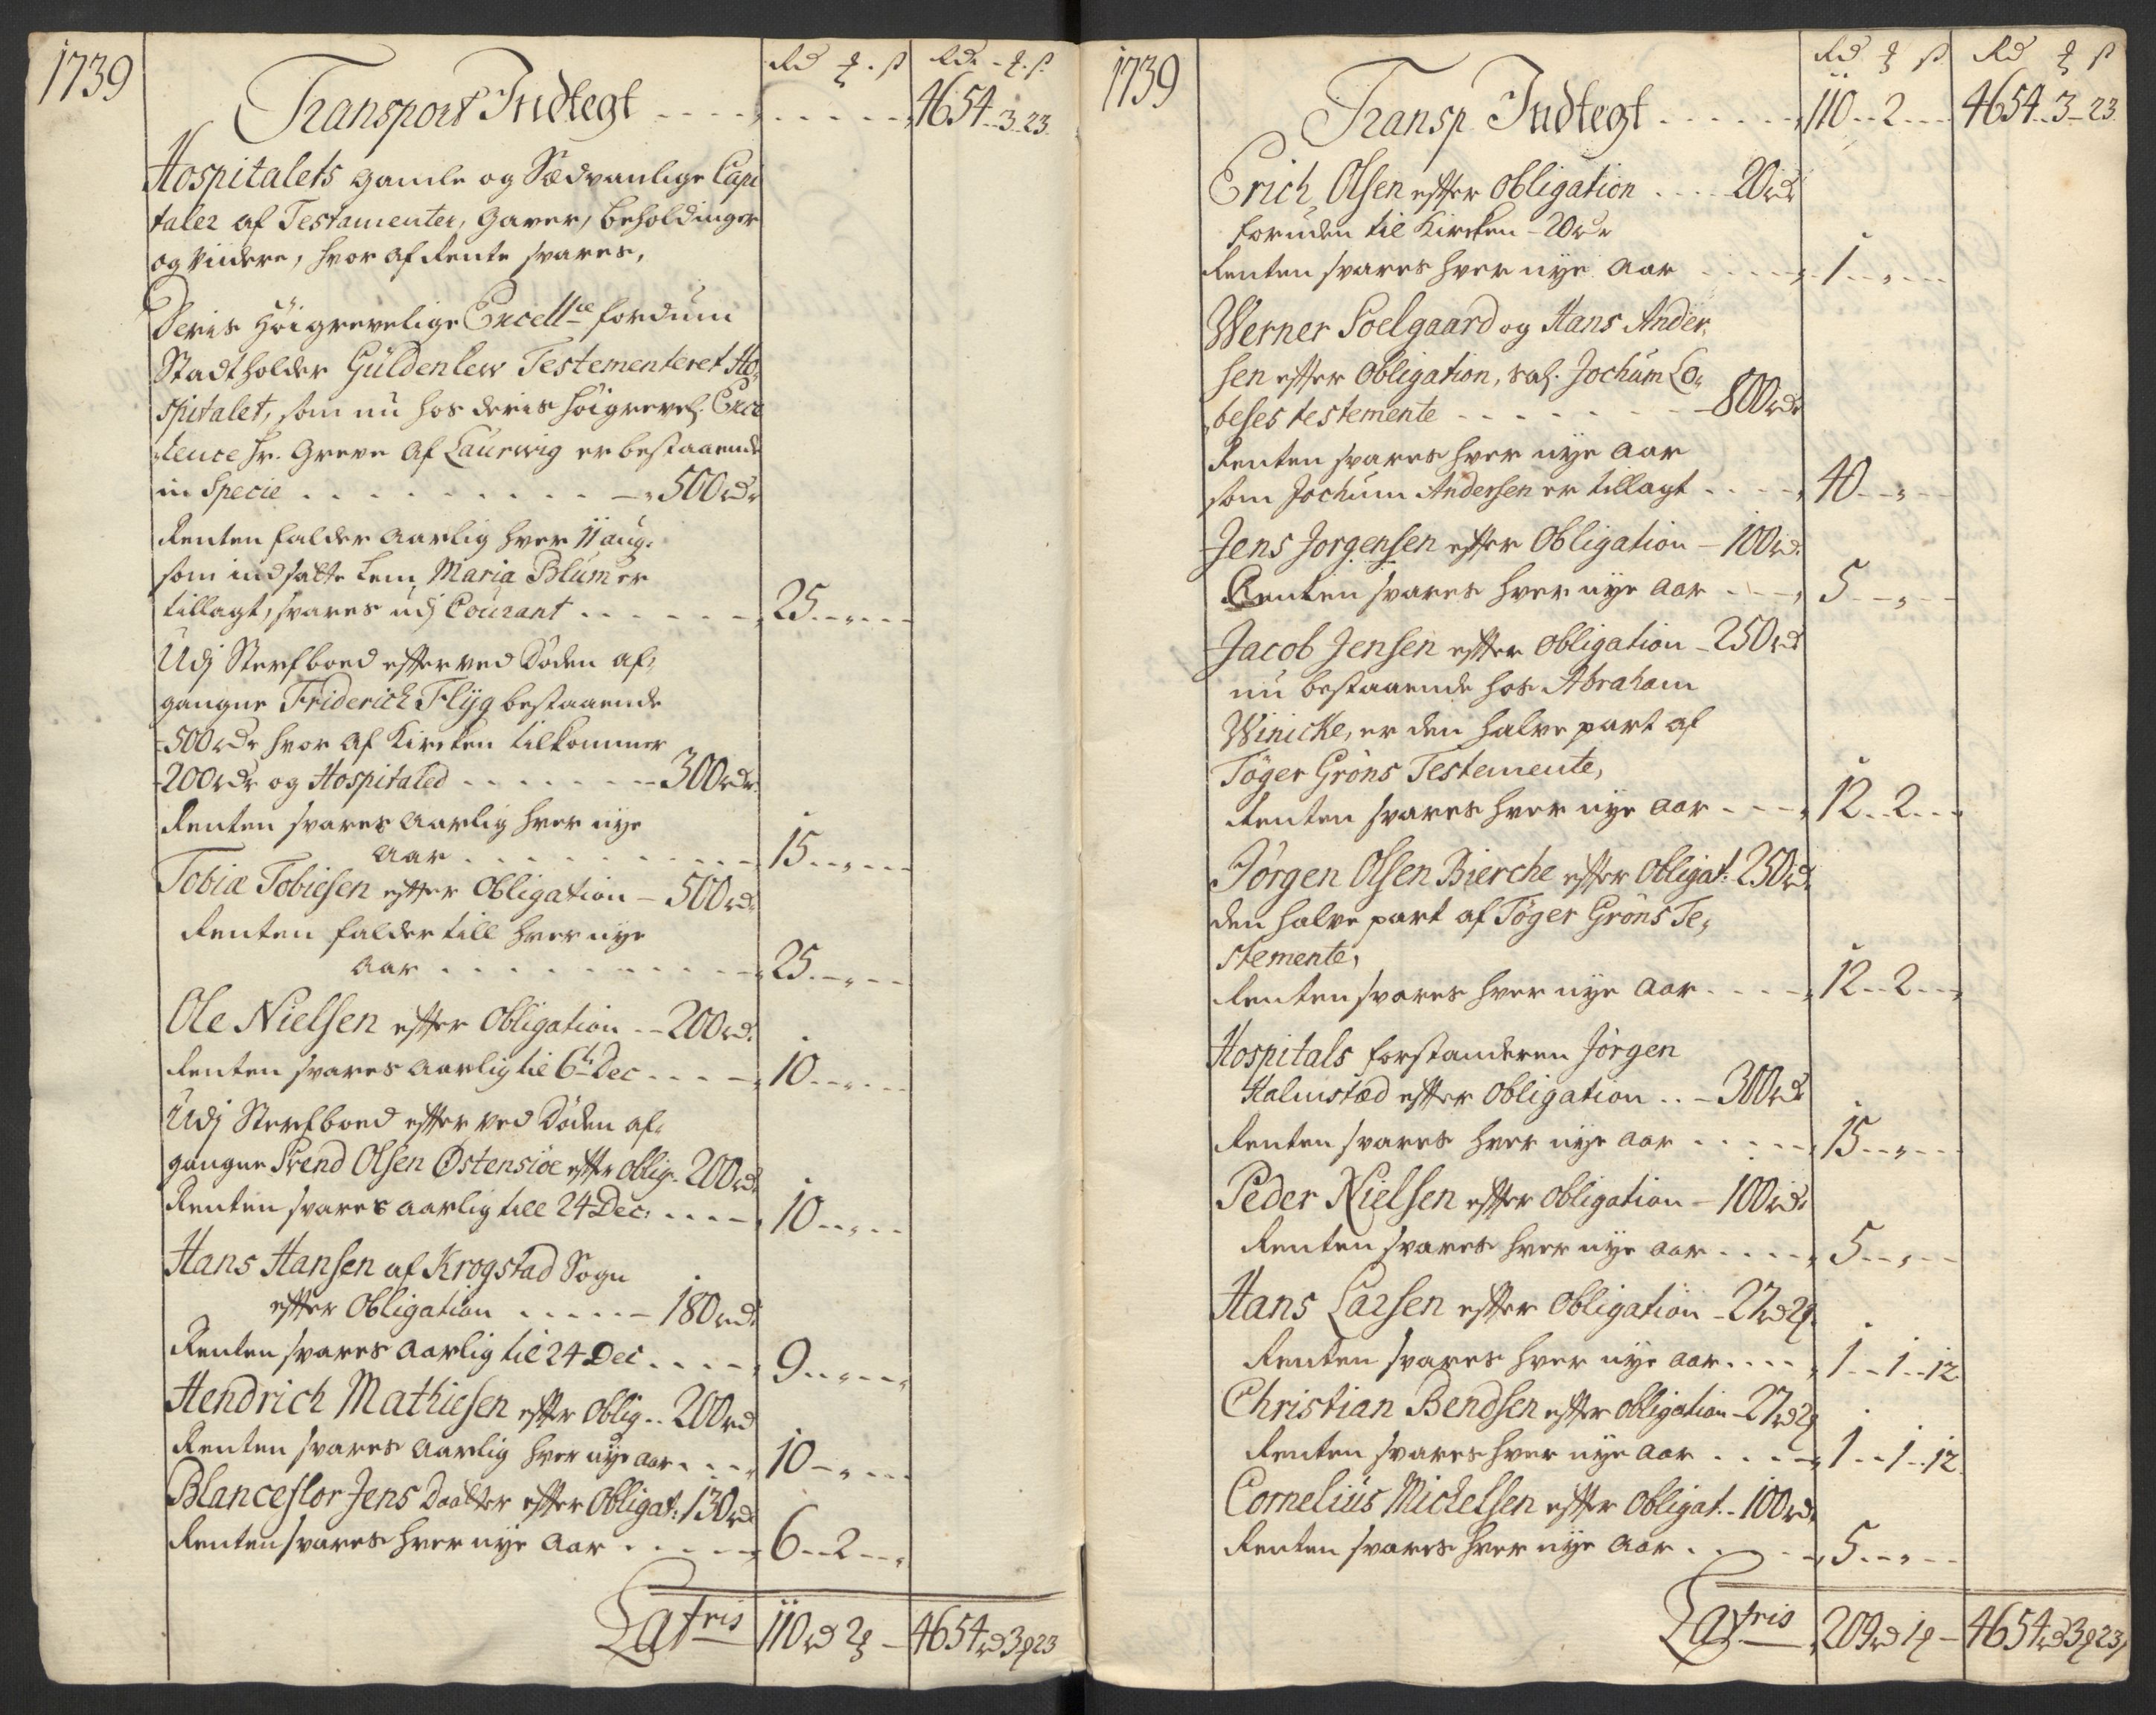 1739
Rd ꝑ ß Rd ꝑ ß
Transport Indtegt 4654 .. 3 .. 23
Hospitalets gamle og Sædvanlige Capi
taler af Testamenter, Gaver, beholdinger
og videre, hvor af Rente svares,
Deris Höigrevelige Excell.ce fordum
Stadtholder Güldenlew Testementeret Ho,
spitalet, som nu hos deris Höigrevel. Exce
lence Hr. Greve af Laurwig er bestaaende
in Specie . . . . 500 rdr
Renten falder aarlig hver 11 aug.
som indsatte Lem, Maria Blüm er
tillagt, svares udj Courant . . . . 25 .. „ ..
Udj Sterfboed efter ved Döden af,
gangne Friderich Flÿg bestaaende
500 rdr hvor af Kircken tilkommer
200 rdr og Hospitaled . . . . 300 rdr
Renten svares aarlig hver nye
aar . . . . 15 .. „ ..
Tobiæ Tobiesen efter Obligation – 500 rdr
Renten falder till hver nye
aar . . . . 25 .. „ ..
Ole Nielsen efter Obligation .. 200 rd.
Renten svares aarlig til 6te Dec . . . 10 .. „ ..
Udj Sterfboed efter ved Döden af,
gangne Svend Olsen Östensiöe efter oblig. 200 rd.
Renten svares aarlig till 24 Dec: . . . 10 .. „ ..
Hans Hansen af Krogstad Sogn
efter Obligation . . . . 180 rd.
Renten svares aarlig til 24 Dec . . . 9 .. „ ..
Hendrich Mathiesen efter Oblig .. 200 rd
Renten svares aarlig hver nye aar . . . 10 .. „ ..
Blanceflor Jens Daatter efter Obligat: 130 rd
Renten svares hver nye aar . . . . 6 .. 2 .. „
Latris 110 rd 2 ꝑ – 4654 rd 3 ꝑ 23
1739
Rd ꝑ ß Rd ꝑ ß
Transp Indtegt . . . . 110 .. 2 .. 4654 .. 3 .. 23
Erich Olsen efter Obligation . . . . 20 rd
foruden til Kircken – 20 rdr
Renten svares hver nye aar . . . . 1 .. „ ..
Werner Soelgaard og Hans Ander,
sen efter Obligation, Sal. Jochum Lo,
beses testemente . . . . 800 rdr
Renten svares hver nye aar
som Jochum Andersen er tillagt . . . 40 .. „ ..
Jens Jorgensen efter Obligation – 100 rd.
Renten svares hver nye aar . . . 5 .. „ ..
Jacob Jensen efter Obligation – 250 rd
nu bestaaende hos Abraham
Winicke, er den halve part af
Töger Gröns Testemente,
Renten svares hver nye aar . . . 12 .. 2 ..
Jörgen Olsen Bierche efter Obligat: 250 rd.
den halve part af Töger Gröns Te,
stemente,
Renten svares hver nye aar . . . . 12 .. 2 ..
Hospitals forstanderen Jörgen
Halmstæd efter Obligation .. – 300 rd
Renten svares hver nye aar . . . . 15 .. „ ..
Peder Nielsen efter Obligation – 100 rd.
Renten svares hver nye aar . . . . 5 .. „ ..
Hans Larsen efter Obligation – 27 rd 2 ꝑ
Renten svares hver nye aar . . . . 1 .. 1 .. 12
Christian Bendsen efter Obligation – 27 rd 2 ꝑ
Renten svares hver nye aar . . . . 1 .. 1 .. 12
Cornelius Michelsen efter Obligat. – 100 rd.
Renten svares hver nye aar . . . . 5 .. „ ..
Latris 209 rd 1 ꝑ – 4654 rd 3 ꝑ 23